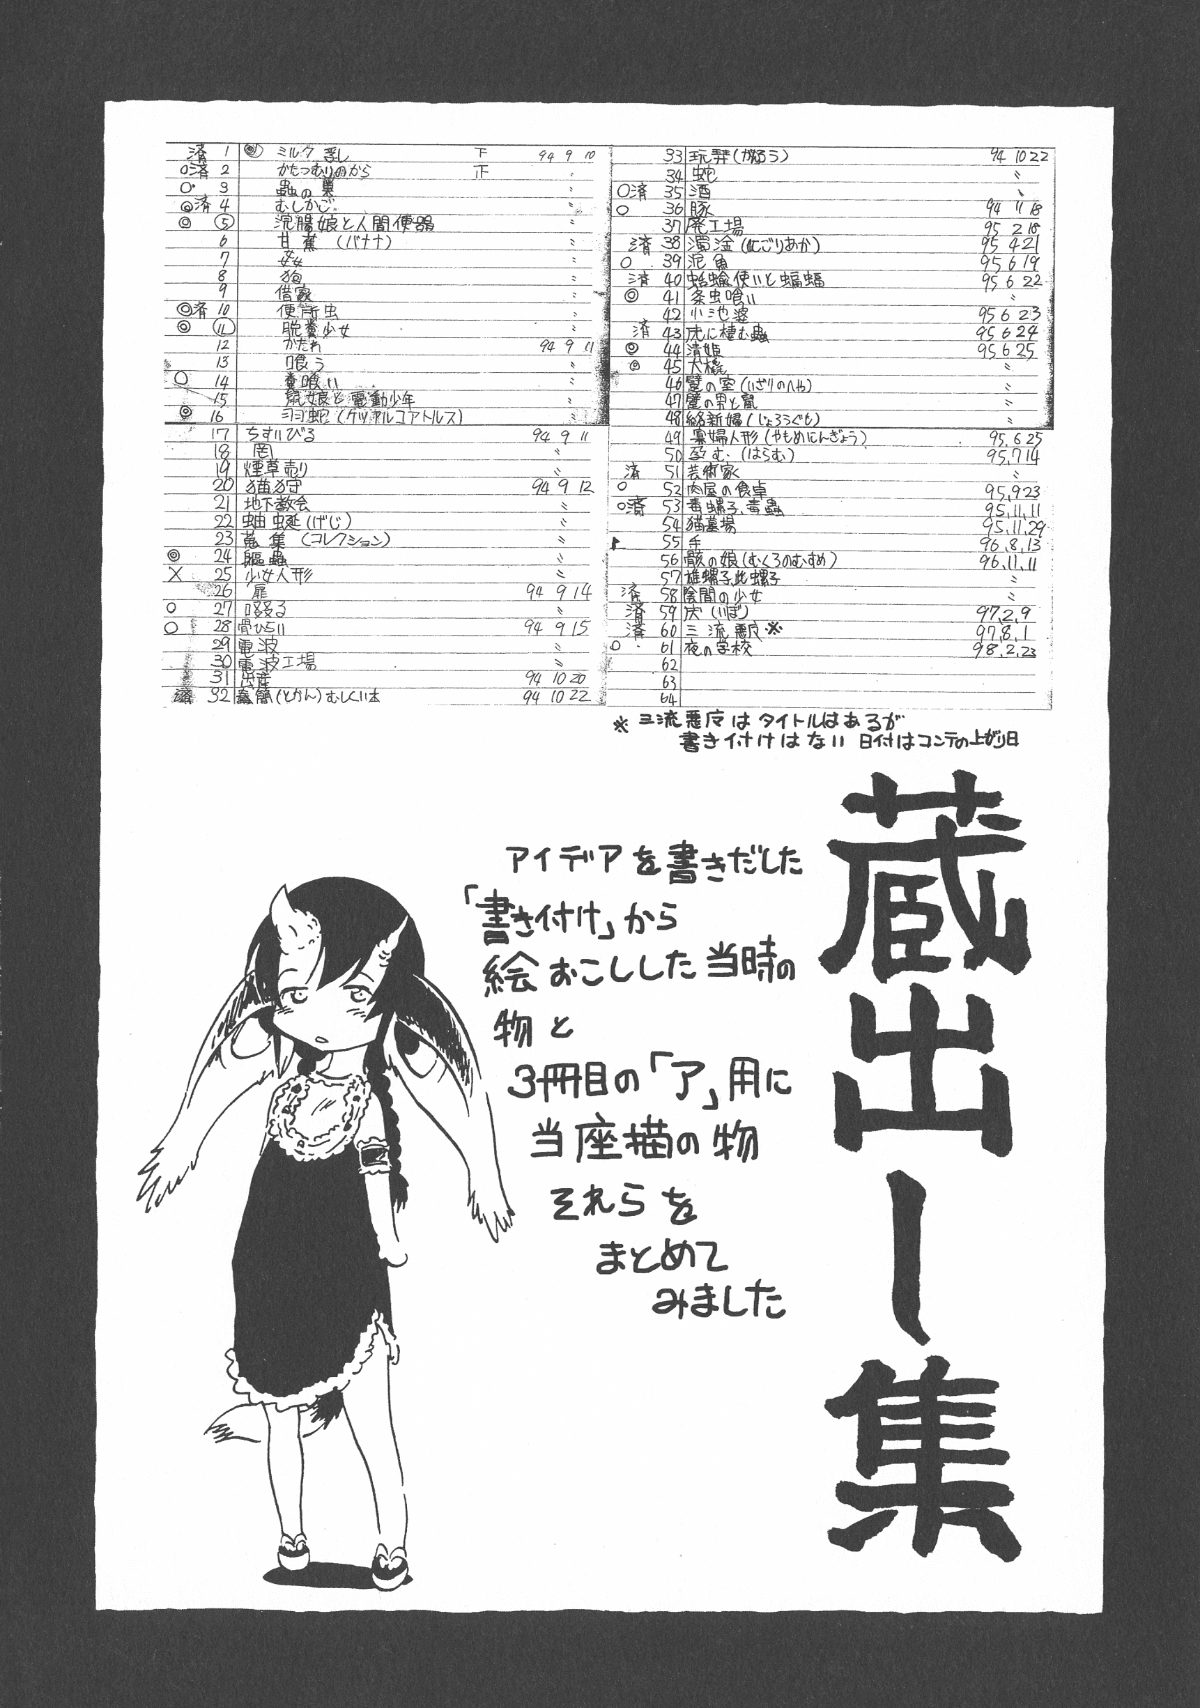 済 1 ◎ ミルク 浸し 下 94 9 10
○済 2 かたつむりのから 正 〃
○ 3 蟲の巣 〃
◎済 4 むしかご 〃
◎ ⑤ 浣腸娘と人間便器 〃
6 甘蕉 (バナナ) 〃
7 〃
8 狗 〃
9 借家 〃
◎済 10 便所虫 〃
◎ ⑪ 脱糞少女 〃
12 かたわ 94 9 11
13 喰う 〃
○ 14 糞喰い 〃
15 娘と電動少年 〃
◎ 16 羽蛇 (ケツァルコアトルス) 〃
17 ちすいびる 94 9 11
18 〃
19 煙草売り 〃
20 猫狩 94 9 12
21 地下教会 〃
22 蚰蜒 (げじ) 〃
23 蒐集 (コレクション) 〃
◎ 24 駆蟲 〃
× 25 少女人形 〃
26 扉 94 9 14
○ 27 〃
○ 28 骨ひらい 94 9 15
29 電波 〃
30 電波工場 〃
31 出産 94 10 20
済 32 蠹簡 (とかん) むしくい本 94 10 22
33 玩弄 (がろう) 94 10 22
34 蛇 〃
○済 35 酒 〃
○ 36 豚 94 11 18
37 廃工場 95 2 18
済 38 濁淦 (にごりあか) 95 4 21
○ 39 泥魚 95 6 19
済 40 蛞蝓使いと蝙蝠 95 6 22
◎ 41 条虫喰い 〃
42 小池婆 95 6 23
済 43 虎に棲む蟲 95 6 24
◎ 44 清姫 95 6 25
◎ 45 大橇 〃
46 躄の室 (いざりのへや) 〃
47 躄の男と鼠 〃
48 絡新婦 (じょろうぐも) 〃
49 寡婦人形 (やもめにんぎょう) 95.6 25
50 孕む (はらむ) 95.7 14
済 51 芸術家 〃
○ 52 肉屋の食卓 95.9 23
○済 53 毒螺子、毒蟲 95.11.11
54 猫墓場 95.11.29
55 手 96.8.13
56 骸の娘 (むくろのむすめ) 96.11.11
57 雄螺子、牝螺子 〃
済 58 陰間の少女 〃
済 59 疣 (いぼ) 97.2.9
済 60 三流悪皮※ 97.8.1
○ 61 夜の学校 98.2.23
62
63
64
※ 三流悪皮はタイトルはあるが
書き付けはない 日付はコンテの上がり日
蔵出し集
アイデアを書きだした
「書き付け」から
絵おこしした当時の
物と
3冊目の「ア」用に
当座描の物
それらを
まとめて
みました